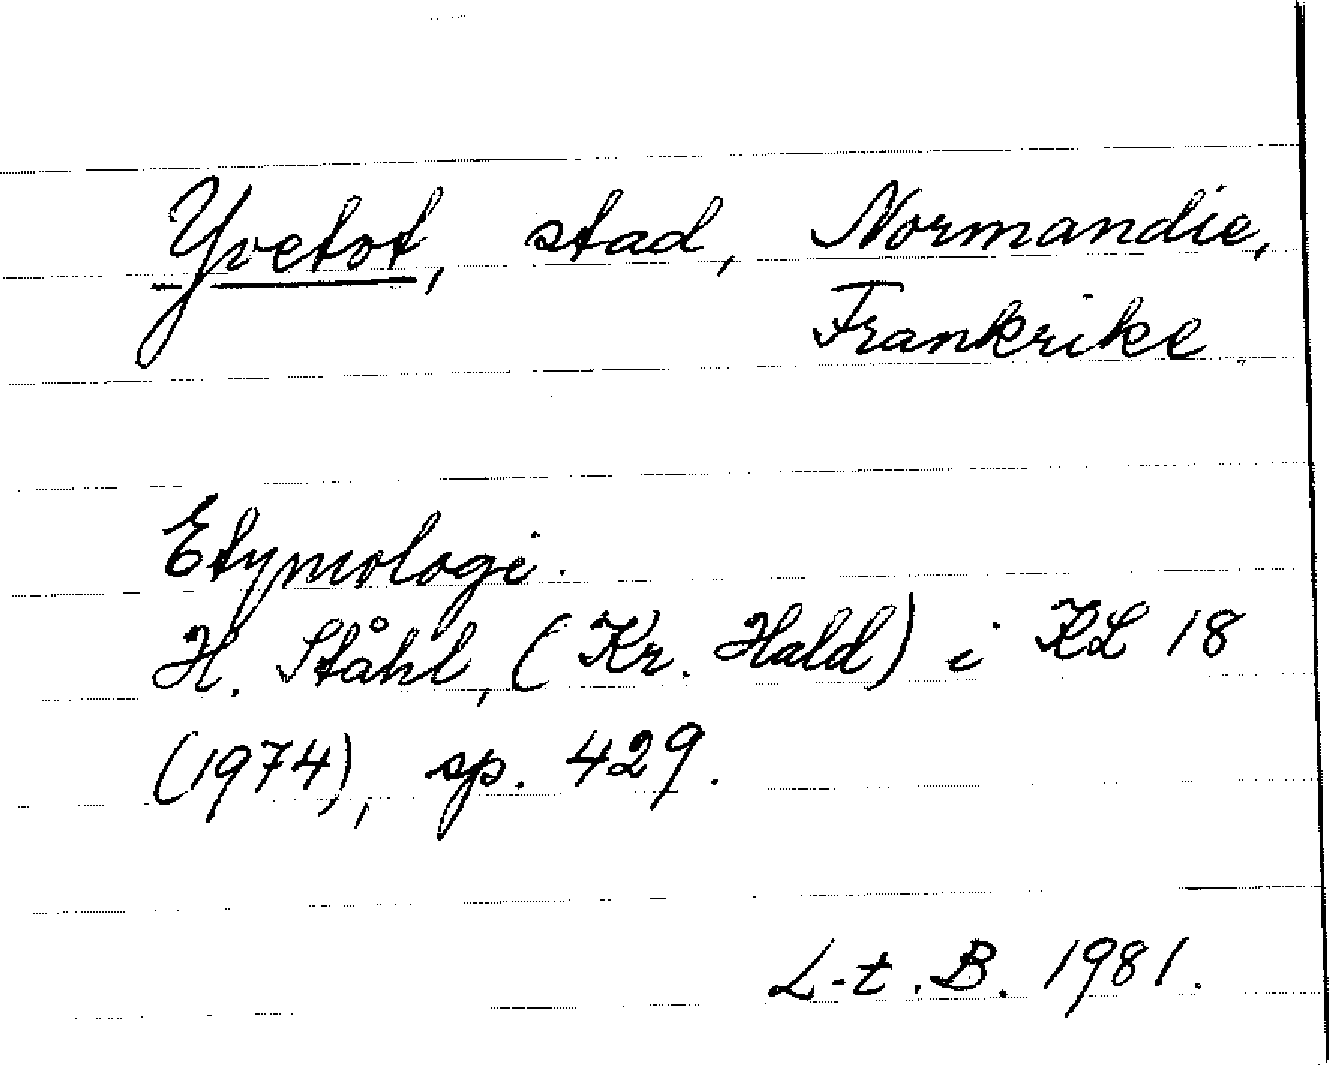 Yvetot, stad, Normandie,
Frankrike.
Etymologi.
H. Ståhl, (Kr. Hald) i KL 18
(1974), sp. 429.
L-t. B. 1981.